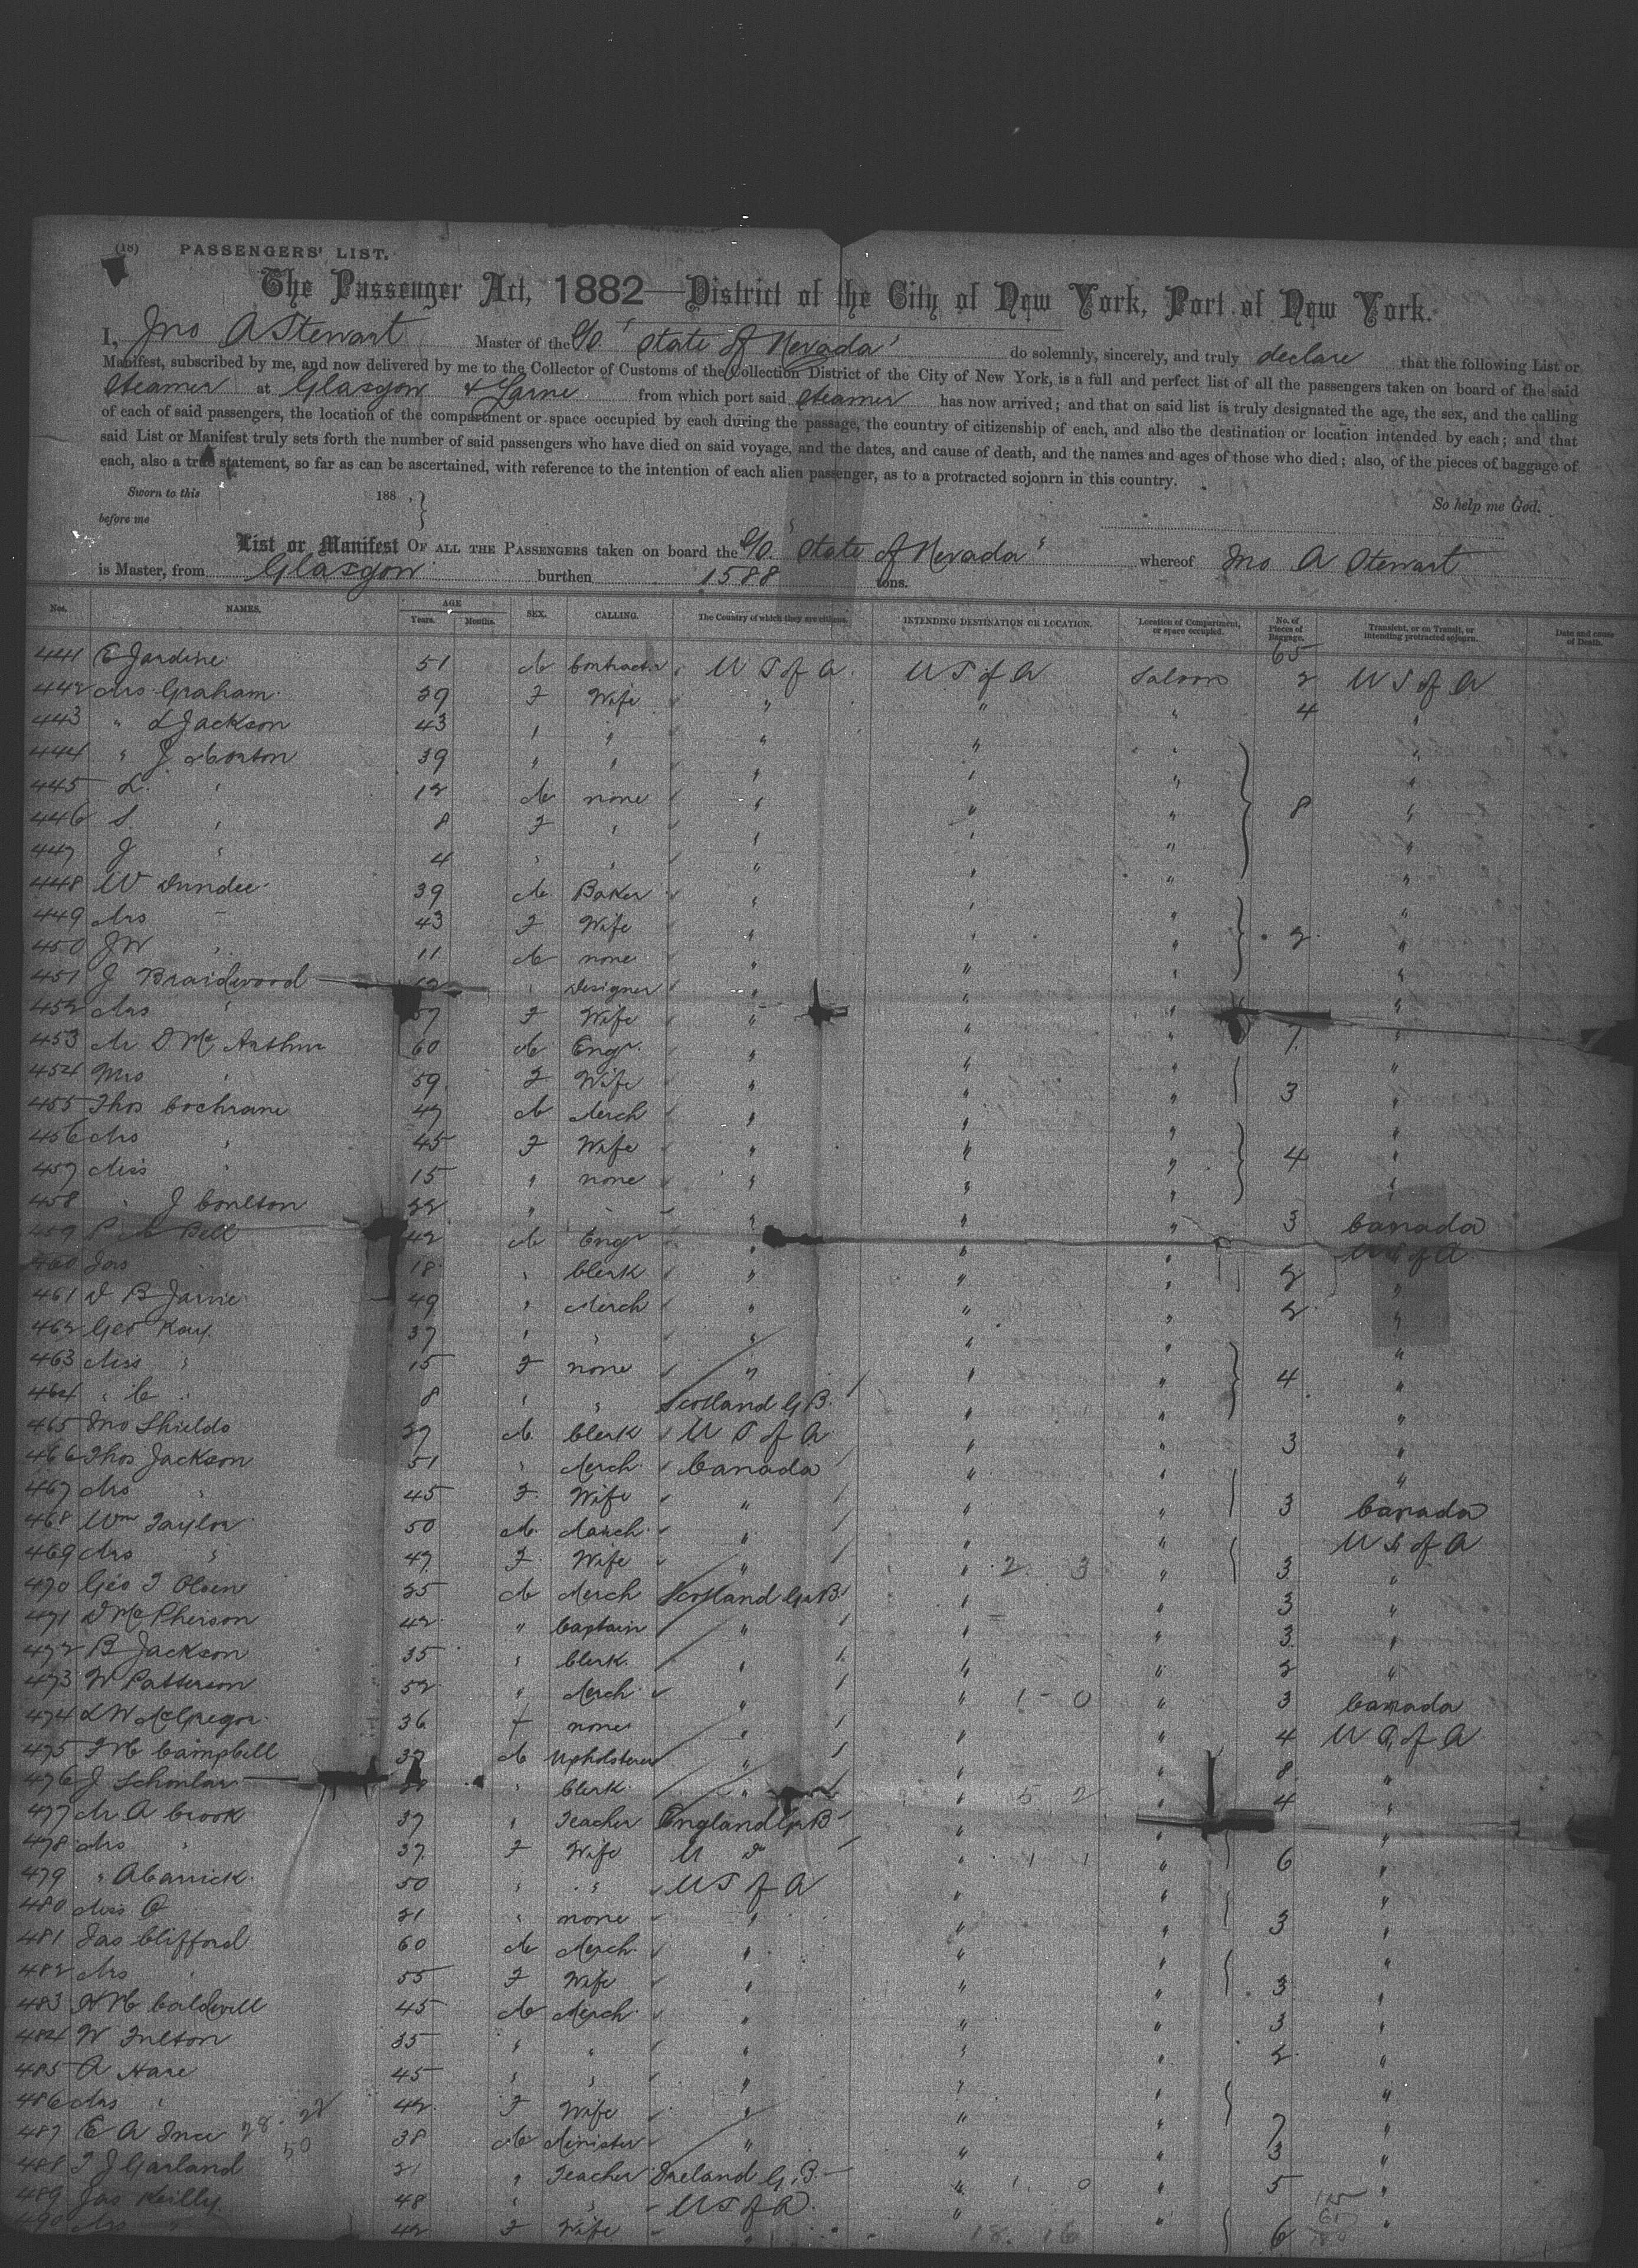 (18) PASSENGERS' LIST.
The Passenger Act, 1882—District of the City of New York, Port of New York.
I, Jno A Stewart Master of the S/S. 'State of Nevada' do solemnly, sincerely, and truly declare that the following List or
Manifest, subscribed by me, and now delivered by me to the Collector of Customs of the Collection District of the City of New York, is a full and perfect list of all the passengers taken on board of the said
Steamer at Glasgow & Larne from which port said Steamer has now arrived; and that on said list is truly designated the age, the sex, and the calling
of each of said passengers, the location of the compartment or space occupied by each during the passage, the country of citizenship of each, and also the destination or location intended by each; and that
said List or Manifest truly sets forth the number of said passengers who have died on said voyage, and the dates, and cause of death, and the names and ages of those who died; also, of the pieces of baggage of
each, also a true statement, so far as can be ascertained, with reference to the intention of each alien passenger, as to a protracted sojourn in this country.
Sworn to this 188 , } So help me God.
before me
List or Manifest OF ALL THE PASSENGERS taken on board the S/S. 'State of Nevada' whereof Jno A Stewart
is Master, from Glasgow burthen 1588 tons.
Nos. NAMES. AGE Years. Months. SEX. CALLING. The Country of which they are citizens. INTENDING DESTINATION OR LOCATION. Location of Compartment, or space occupied. No. of Pieces of Baggage. Transient, or in Transit, or intending protracted sojourn. Date and cause of Death.
65
441 E Jardine 51 M Contractor U S of A U S of A Saloon 2 U S of A
442 Mrs Graham 39 F Wife " " " 4 "
443 " L Jackson 43 " " " " " "
444 " J Morton 39 " " " " " "
445 L. " 12 M none " " " 8 "
446 S. " 8 F " " " " "
447 J " 4 " " " " " "
448 W Dundee 39 M Baker " " " "
449 Mrs " 43 F Wife " " " 2 "
450 JW " 11 M none " " " "
451 J Braidwood " Designer " " " "
452 Mrs " F Wife " " " 7 "
453 Mr D McArthur 60 M Engr. " " " "
454 Mrs " 59 F Wife " " " 3 "
455 Thos Cochrane 47 M Merch " " " "
456 Mrs " 45 F Wife " " " 4 "
457 Miss " 15 " none " " " "
458 " J Coulton 22 " " " " " 3 Canada
459 P M Bell 42 M Engr " " " U S of A
460 Jas 18 " Clerk " " " 2 "
461 D B Jarvie 49 " Merch " " " 2 "
462 Geo Kay 37 " " " " " "
463 Miss " 15 F none " " " 4 "
464 " C " 8 " " Scotland G.B. " " "
465 Jno Shields 27 M Clerk U S of A " " 3 "
466 Thos Jackson 51 " Merch Canada " " "
467 Mrs " 45 F Wife " " " 3 Canada
468 Wm Taylor 50 M March " " " U S of A
469 Mrs " 47 F Wife " " 2 3 " 3 "
470 Geo T Olsen 25 M Merch Scotland G.B. " " 3 "
471 D McPherson 42 " Captain " " " 3 "
472 B Jackson 35 " Clerk " " " 2 "
473 W Patterson 52 " Merch " " 1 - 0 " 3 Canada
474 L W McGregor 36 f none " " " 4 U S of A
475 J McCampbell 37 M Upholsterer " " " 8 "
476 J " Clerk " " 5 2 " 4 "
477 Mr A Crook 37 " Teacher England G.B " " "
478 Mrs " 37 F Wife " 1 1 " 6 "
479 " A Carrick 50 " " U S of A " " "
480 Miss A 21 " none " " " 3 "
481 Jas Clifford 60 M Merch " " " "
482 Mrs " 55 F Wife " " " 3 "
483 H McCaldwell 45 M Merch " " " 3 "
484 W Fulton 35 " " " " " 2 "
485 A Hare 45 " " " " " "
486 Mrs " 42 F Wife " " " 7 "
487 E A Ince 38 M Minister " " " 3 "
488 T J Garland 21 " Teacher Ireland G.B. " 1 0 " 5 "
489 Jas Reilly 48 " " U S of A " " "
490 Mrs " 42 F Wife " 18. 16 6